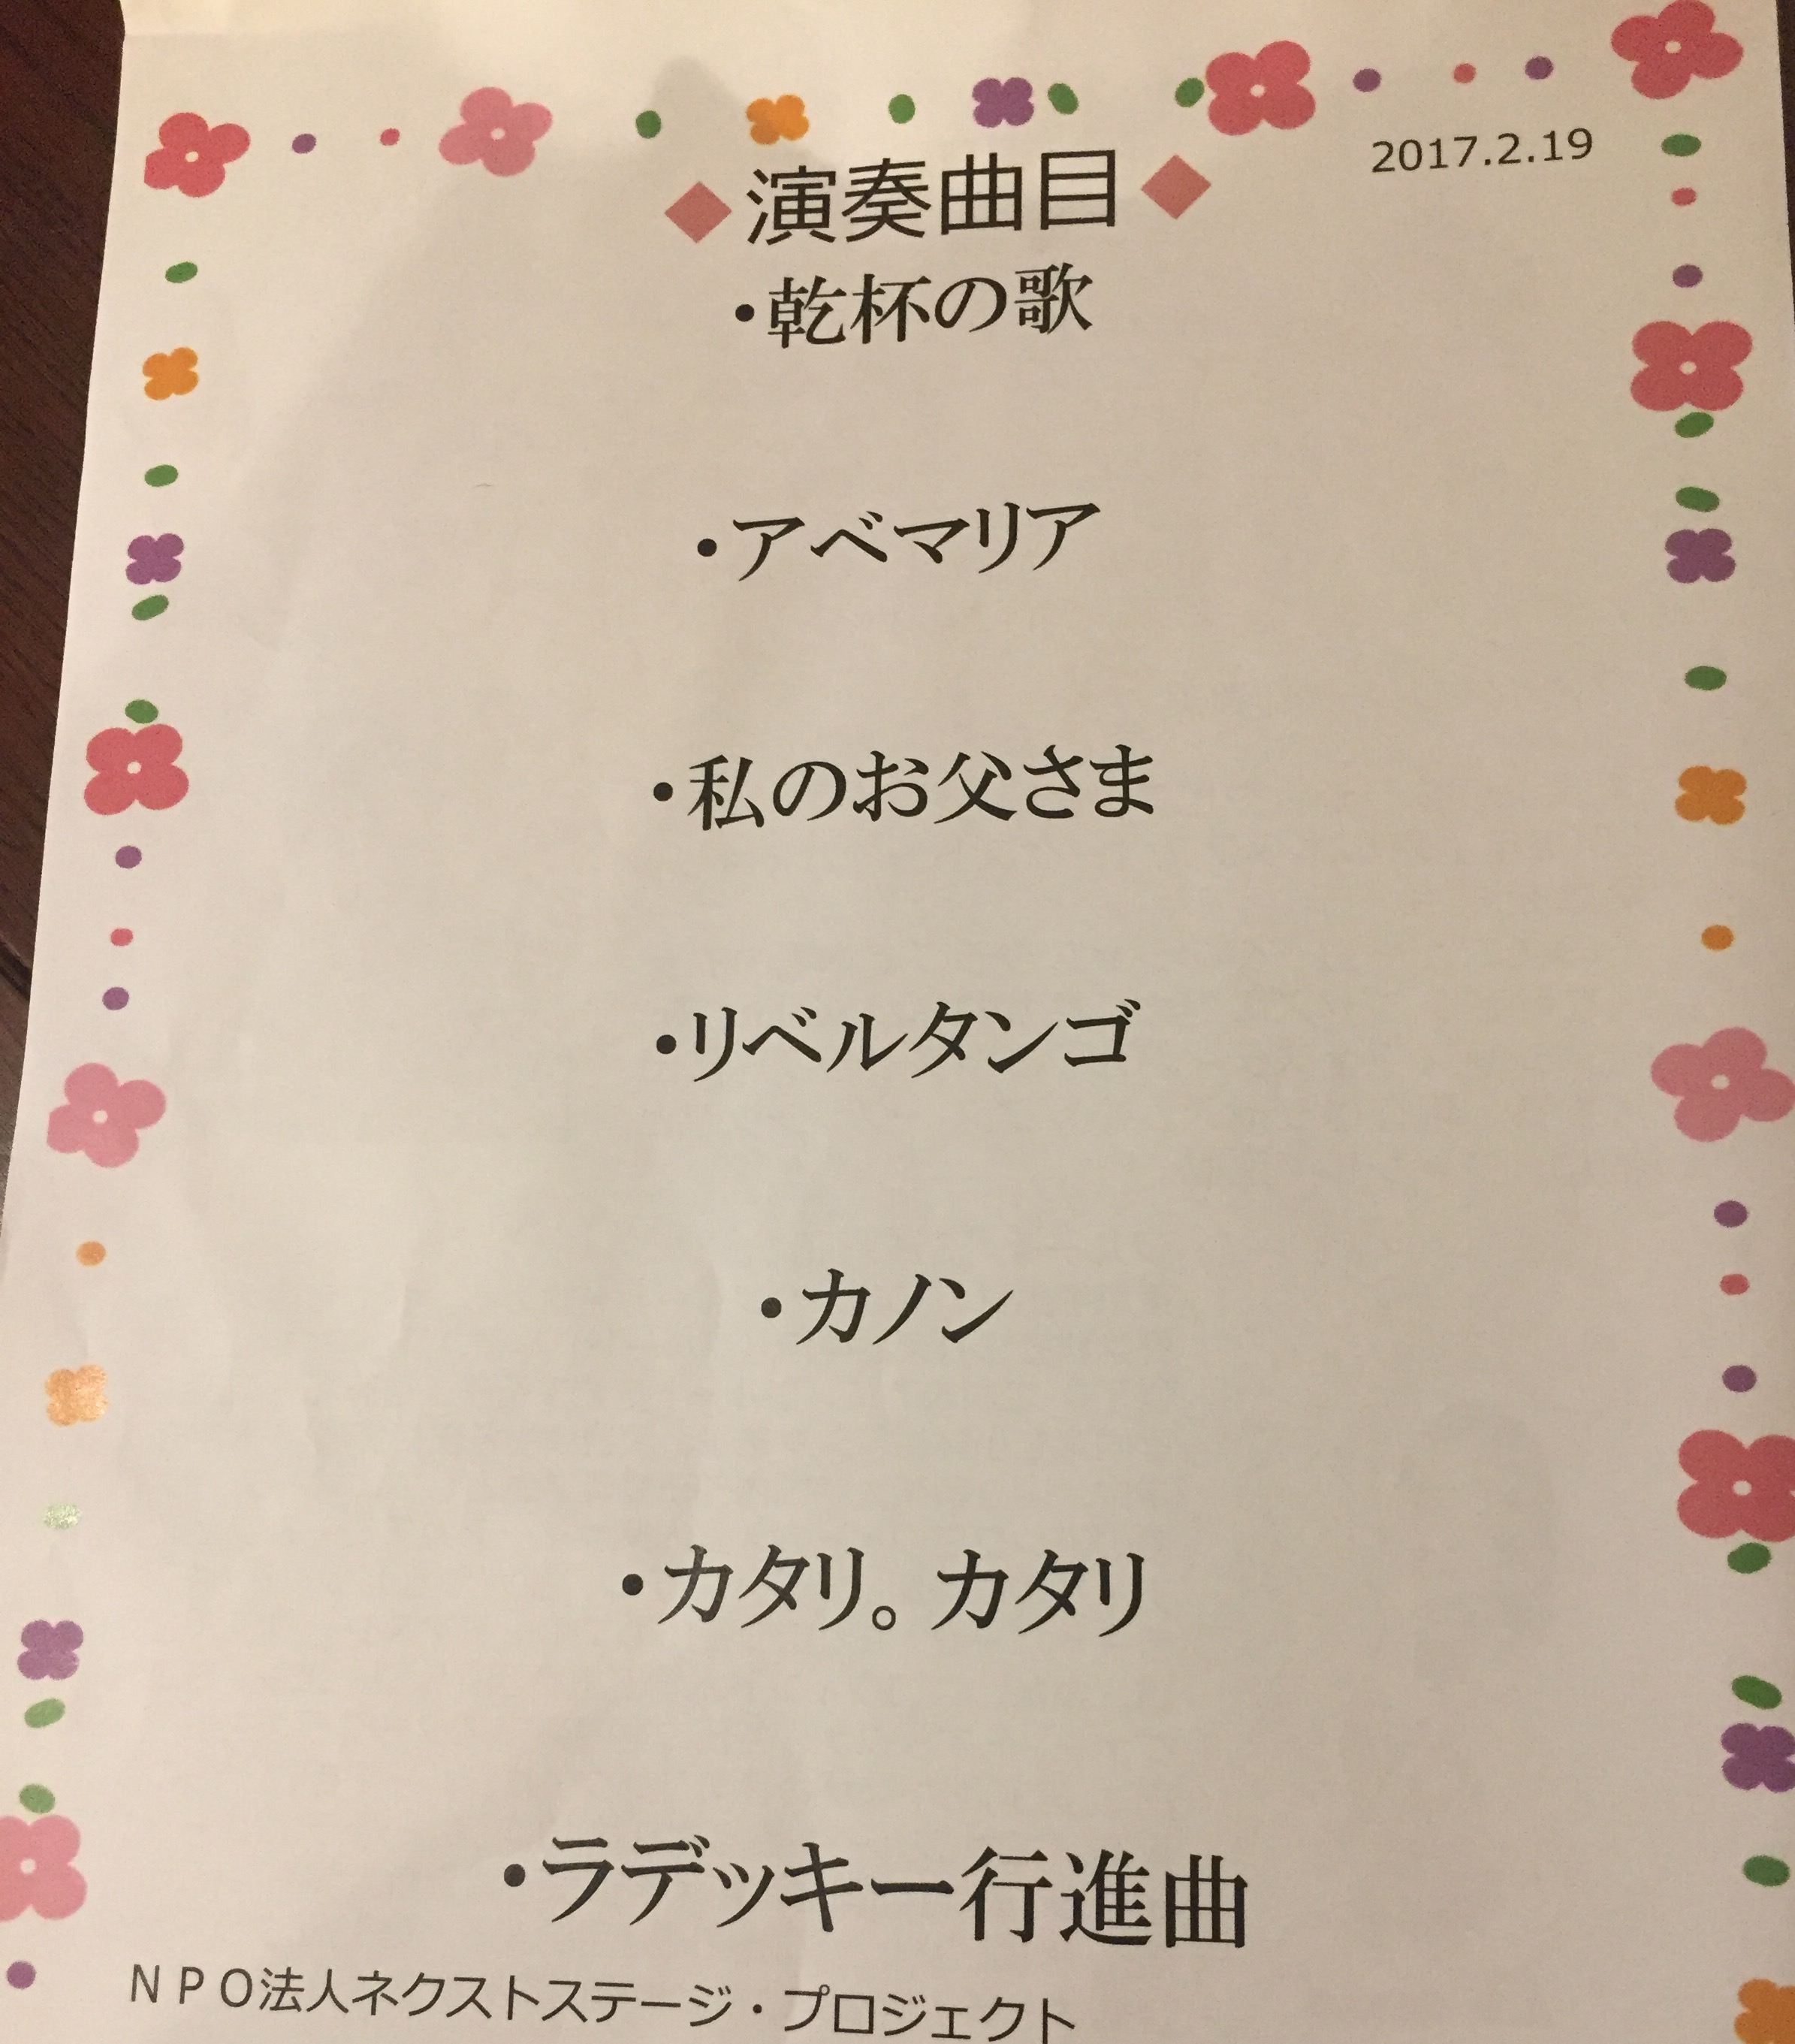 2017.2.19
◆演奏曲目◆
・乾杯の歌
・アベマリア
・私のお父さま
・リベルタンゴ
・カノン
・カタリ。カタリ
・ラデッキー行進曲
ＮＰＯ法人ネクストステージ・プロジェクト